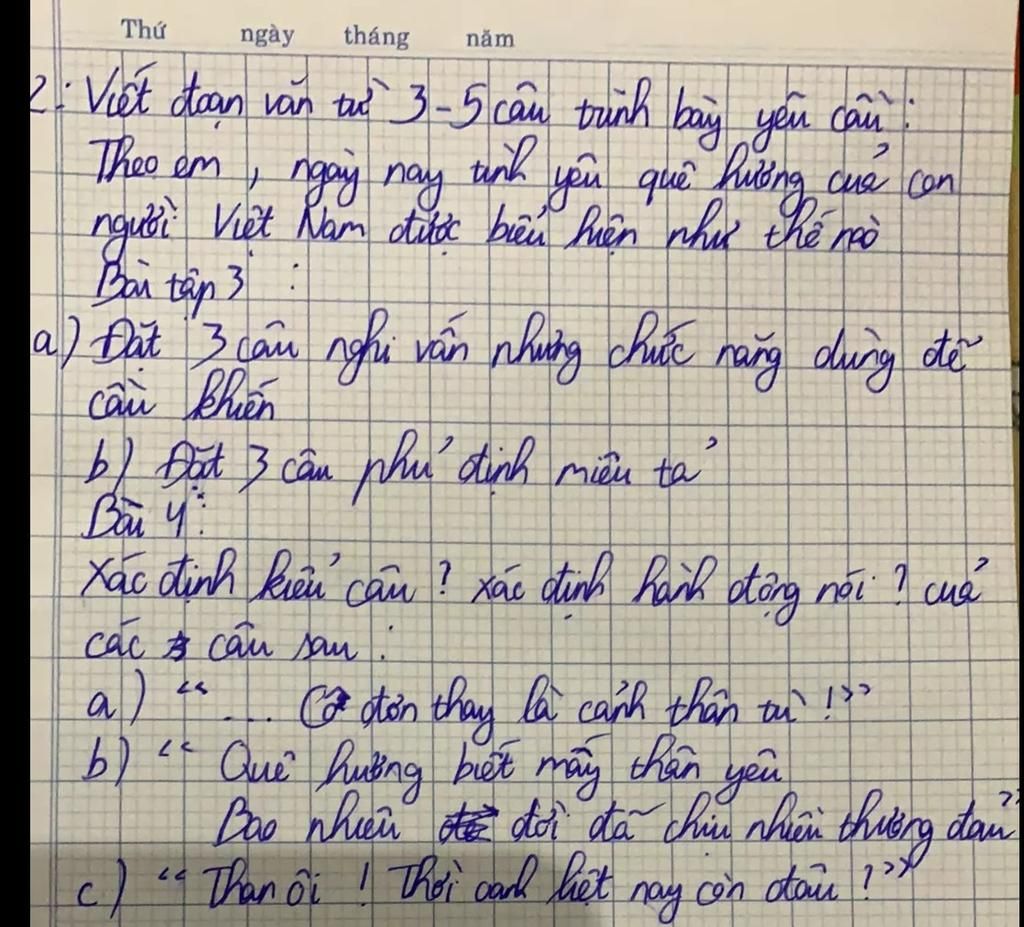 Thứ ngày tháng năm
2: Viết đoạn văn từ 3-5 câu trình bày yêu cầu :
Theo em , ngày nay tình yêu quê hương của con
người Việt Nam được biểu hiện như thế nào
Bài tập 3 :
a) Đặt 3 câu nghi vấn nhưng chức năng dùng để
cầu khiến
b) Đặt 3 câu phủ định miêu tả
Bài 4 :
Xác định kiểu câu ? Xác định hành động nói ? của
các câu sau :
a) “ ... Cô đơn thay là cảnh thân tù !”
b) “ Quê hương biết mấy thân yêu
Bao nhiêu đời đã chịu nhiều thương đau”
c) “ Than ôi ! Thời oanh liệt nay còn đâu ?”